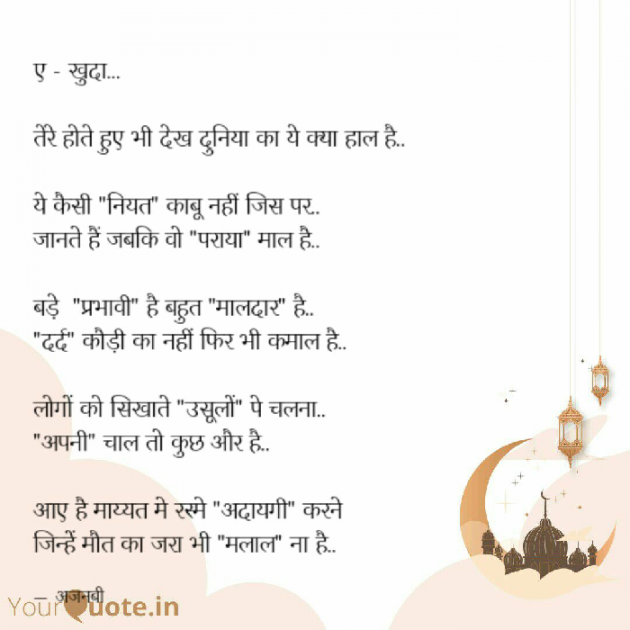 ए - खुदा...
तेरे होते हुए भी देख दुनिया का ये क्या हाल है..
ये कैसी "नियत" काबू नहीं जिस पर..
जानते हैं जबकि वो "पराया" माल है..
बड़े "प्रभावी" है बहुत "मालदार" है..
"दर्द" कौड़ी का नहीं फिर भी कमाल है..
लोगों को सिखाते "उसूलों" पे चलना..
"अपनी" चाल तो कुछ और है..
आए है माय्यत मे रस्मे "अदायगी" करने
जिन्हें मौत का जरा भी "मलाल" ना है..
– अजनबी
YourQuote.in